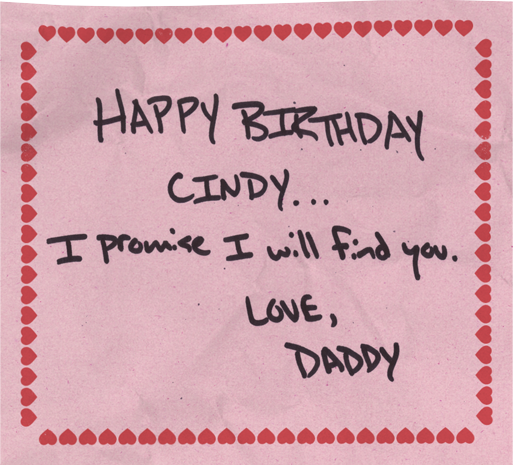 HAPPY BIRTHDAY
CINDY...
I promise I will find you.
LOVE,
DADDY